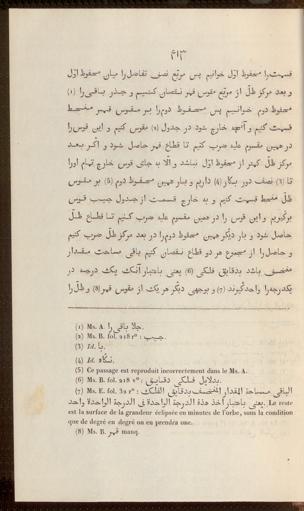 ٤١٣
قسمت را محفوظ اوّل خوانیم پس مربّع نصف تفاضل را میان محفوظ اوّل
و بعد مرکز ظلّ از مربّع مقوس قمر نقصان کنیم و جذر باقی را (1)
محفوظ دوم خوانیم پس محفوظ دوم را بر مقوس قمر منحط
قسمت کنیم و آنچه خارج شود در جدول (2) مقوس کنیم و این قوس را
در همین مقسوم علیه ضرب کنیم تا قطاع قمر حاصل شود و اگر بعد
مرکز ظلّ کمتر از محفوظ اوّل نباشد و الّا به جای قوس خارج تمام اورا
تا (3) نصف دور بکار (4) داریم و بار همین محفوظ دوم (5) بر مقوس
ظلّ منحط قسمت کنیم و به خارج قسمت از جدول جیب قوس
برگیریم و این قوس را در همین مقسوم علیه ضرب کنیم تا قطاع ظلّ
حاصل شود و بار دیگر همین محفوظ دوم را در بعد مرکز ظلّ ضرب کنیم
و حاصل را از مجموع هر دو قطاع نقصان کنیم باقی مساحت مقدار
منخسف باشد بدقایق فلکی (6) یعنی باعتبار آنک یک درجه در
یکدرجه را واحد گیرند (7) و بوجهی دیگر هر یک از مقوس قمر (8) و ظلّ را
(1) Ms. A. جلا باقی را.
(2) Ms. B. fol. 218 r° : جیب.
(3) Id. با.
(4) Id. نگاه.
(5) Ce passage est reproduit incorrectement dans le Ms. A.
(6) Ms. B. fol. 218 v° : بدلایل فلکی دقایق.
(7) Ms. E. fol. 32 r° : الباقی مساحة المقدار المنخسف بدقایق الفلک
یعنی باعتبار أخذ هذة الدرجة الواحدة فی الدرجة الواحدة واحد. Le reste
est la surface de la grandeur éclipsée en minutes de l'orbe, sous la condition
que de degré en degré on en prendra une.
(8) Ms. B. قمر manq.